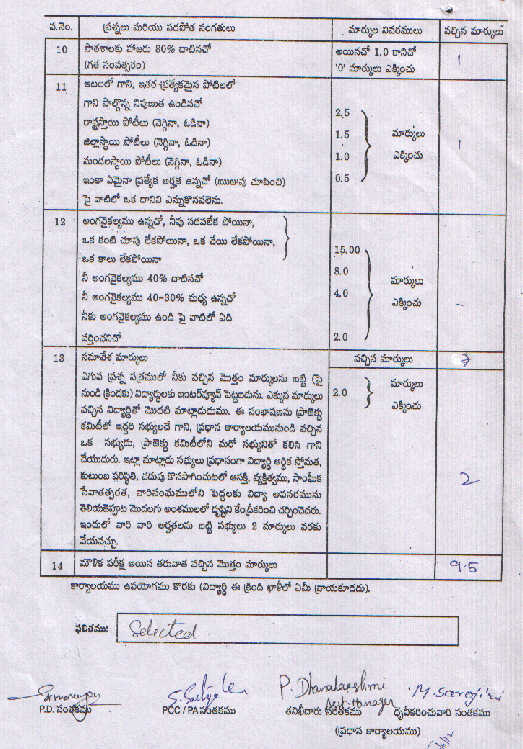 ప.నెం. ప్రశ్నలు మరియు పడపోత సంగతులు మార్కుల వివరములు వచ్చిన మార్కులు
10 పాఠశాలకు హాజరు 80% దాటినచో అయినచో 1.0 కానిచో 1
(గత సంవత్సరం) '0' మార్కులు ఎక్కించు
11 ఆటలలో గాని, ఇతర ప్రత్యేకమైన పోటీలలో
గాని పాల్గొన్న నిపుణుత ఉండినచో
రాష్ట్రస్థాయి పోటీలు (నెగ్గినా, ఓడినా) 2.5
జిల్లాస్థాయి పోటీలు (నెగ్గినా, ఓడినా) 1.5 మార్కులు 1
మండలస్థాయి పోటీలు (నెగ్గినా, ఓడినా) 1.0 ఎక్కించు
ఇంకా ఏమైనా ప్రత్యేక అర్హత ఉన్నచో (ఋజువు చూపించి) 0.5
పై వాటిలో ఒక దానిని ఎన్నుకొనవలెను.
12 అంగవైకల్యము ఉన్నచో, నీవు నడవలేక పోయినా,
ఒక కంటి చూపు లేకపోయినా, ఒక చేయి లేకపోయినా, 15.00
ఒక కాలు లేకపోయినా 8.0
నీ అంగవైకల్యము 40% దాటినచో 4.0 మార్కులు -
నీ అంగవైకల్యము 40-30% మధ్య ఉన్నచో ఎక్కించు
నీకు అంగవైకల్యము ఉండి పై వాటిలో ఏది
వర్తించనిచో 2.0
13 సమావేశ మార్కులు వచ్చిన మార్కులు
ఏగువ ప్రశ్న పత్రములో నీకు వచ్చిన మొత్తం మార్కులను బట్టి (పై
నుండి క్రిందకు) విద్యార్థులకు ఇంటర్‌వ్యూవ్ పెట్టబడును. ఎక్కువ మార్కులు 2.0 మార్కులు
వచ్చిన విద్యార్థితో మొదటి మాట్లాడుదుము. ఈ సంభాషణను ప్రాజెక్టు ఎక్కించు
కమిటీలో ఇద్దరి సభ్యులచే గాని, ప్రధాన కార్యాలయమునుండి వచ్చిన
ఒక సభ్యుడు, ప్రాజెక్టు కమిటీలోని మరో సభ్యునితో కలిసి గాని
చేయుదురు. ఇట్లా మాట్లాడు సభ్యులు ప్రధానంగా విద్యార్థి ఆర్థిక స్తోమత,
కుటుంబ పరిస్థితి, చదువు కొనసాగించుటలో ఆసక్తి, వ్యక్తిత్వము, సాంఘిక 2
సేవాతత్పరత, వారిసంఘములోని పెద్దలకు విద్యా అవసరమును
తెలియజెప్పుట మొదలగు అంశములలో దృష్టిని కేంద్రీకరించి చర్చించెదరు.
ఇందులో వారి వారి అర్హతలను బట్టి సభ్యులు 2 మార్కులు వరకు
వేయవచ్చు.
14 మౌళిక పరీక్ష అయిన తరువాత వచ్చిన మొత్తం మార్కులు 9.5
కార్యాలయము ఉపయోగము కొరకు (విద్యార్థి ఈ క్రింది ఖాళీలో ఏమీ వ్రాయకూడదు).
ఫలితము: Selected
P. Dhanalakshmi M. Sarojini
P.D. సంతకము PCC / PA సంతకము తనిఖీదారు సంతకము ధృవీకరించువారి సంతకము
(ప్రధాన కార్యాలయము)